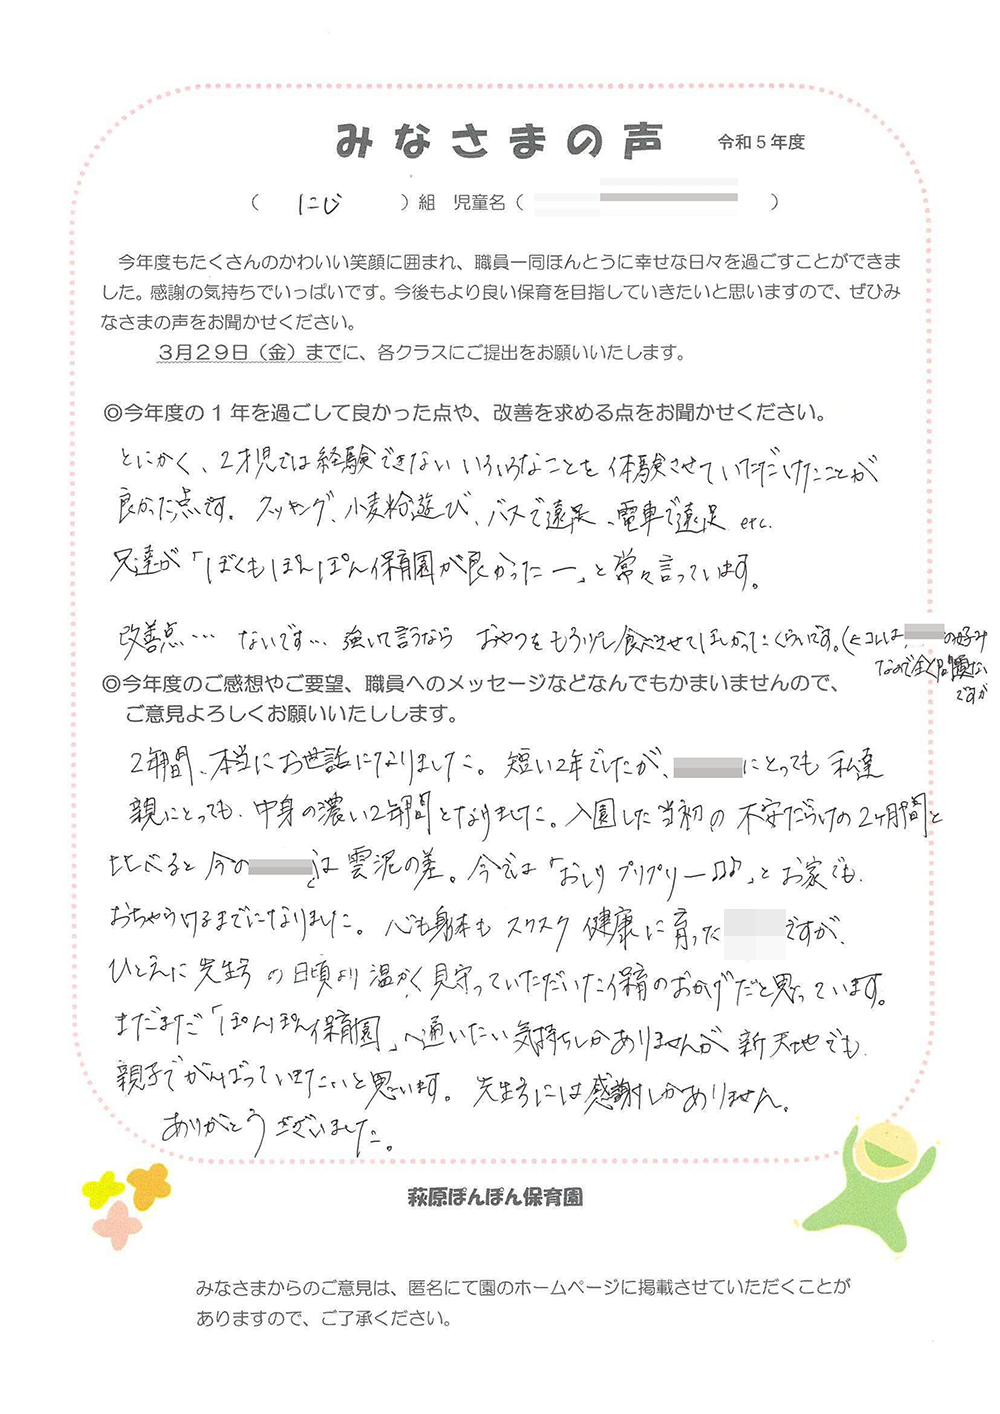 みなさまの声 令和５年度
（ にじ ）組 児童名（ ）
今年度もたくさんのかわいい笑顔に囲まれ、職員一同ほんとうに幸せな日々を過ごすことができま
した。感謝の気持ちでいっぱいです。今後もより良い保育を目指していきたいと思いますので、ぜひみ
なさまの声をお聞かせください。
３月２９日（金）までに、各クラスにご提出をお願いいたします。
◎今年度の１年を過ごして良かった点や、改善を求める点をお聞かせください。
とにかく、2才児では経験できない いろいろなことを 体験させていただけたことが
良かった点です。クッキング、小麦粉遊び、バスで遠足、電車で遠足 etc.
兄達が「ぼくもぽんぽん保育園が良かったー」と常々言っています。
改善点… ないです… 強いて言うなら おやつをもう少し食べさせてほしかったくらいです。(←コレは の好み
なので全く問題ない
ですが
◎今年度のご感想やご要望、職員へのメッセージなどなんでもかまいませんので、
ご意見よろしくお願いいたしします。
2年間、本当にお世話になりました。短い2年でしたが、 にとっても 私達
親にとっても、中身の濃い2年間となりました。入園した当初の 不安だらけの2ヶ月間と
比べると 今の は 雲泥の差。今では「おしりプリプリー♫♪」と お家でも、
おちゃらけるまでになりました。心も身体も スクスク 健康に育った ですが、
ひとえに 先生方の日頃より温かく見守っていただいた保育のおかげだと思っています。
まだまだ「ぽんぽん保育園」へ通いたい気持ちしかありませんが 新天地でも、
親子でがんばっていきたいと思います。先生方には感謝しかありません。
ありがとうございました。
萩原ぽんぽん保育園
みなさまからのご意見は、匿名にて園のホームページに掲載させていただくことが
ありますので、ご了承ください。